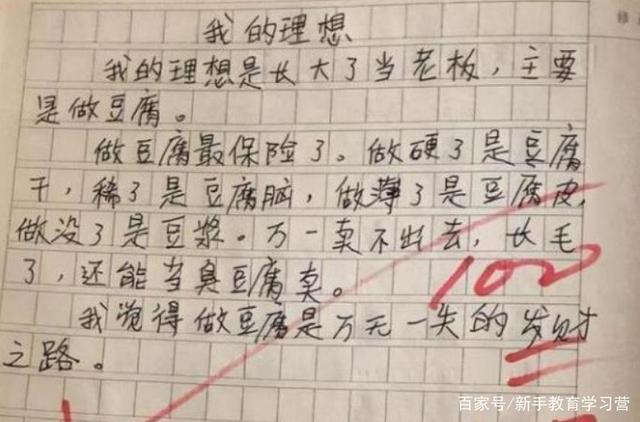 我的理想
我的理想是长大了当老板，主要
是做豆腐。
做豆腐最保险了。做硬了是豆腐
干，稀了是豆腐脑，做薄了是豆腐皮，
做没了是豆浆。万一卖不出去，长毛
了，还能当臭豆腐卖。
100
我觉得做豆腐是万无一失的发财
之路。
百家号/新手教育学习营